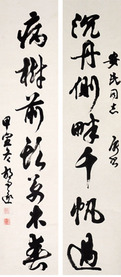 安民同志 属
沉舟侧畔千帆过
病树前头万木春
甲寅冬